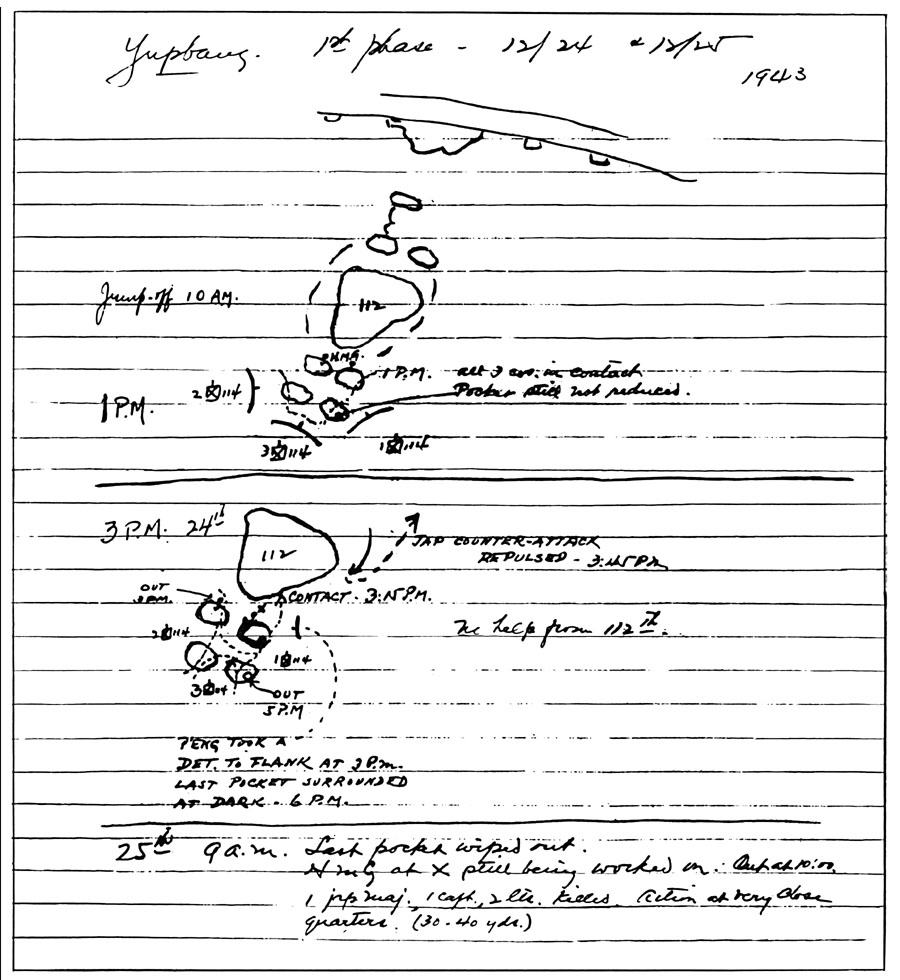 Yupbang. 1st phase - 12/24 & 12/25
1943
Jump-off 10 AM.
112
HMG.
1 P.M. all 3 cos. in contact
Pocket still not reduced.
2 114
1 P.M.
3 114
1 114
3 P.M. 24th
112
JAP COUNTER-ATTACK
REPULSED - 3:45 PM
OUT
3 PM.
CONTACT - 3:15 P.M.
No help from 112th.
2 114
1 114
3 114
OUT
5 P.M
P'ENG TOOK A
DET. TO FLANK AT 3 P.m.
LAST POCKET SURROUNDED
AT DARK - 6 P.M.
25th 9 a.m. Last pocket wiped out.
HMG at X still being worked on. Out at 10:00
1 jap maj., 1 capt., 2 lts. killed. Action at very close
quarters. (30-40 yds.)